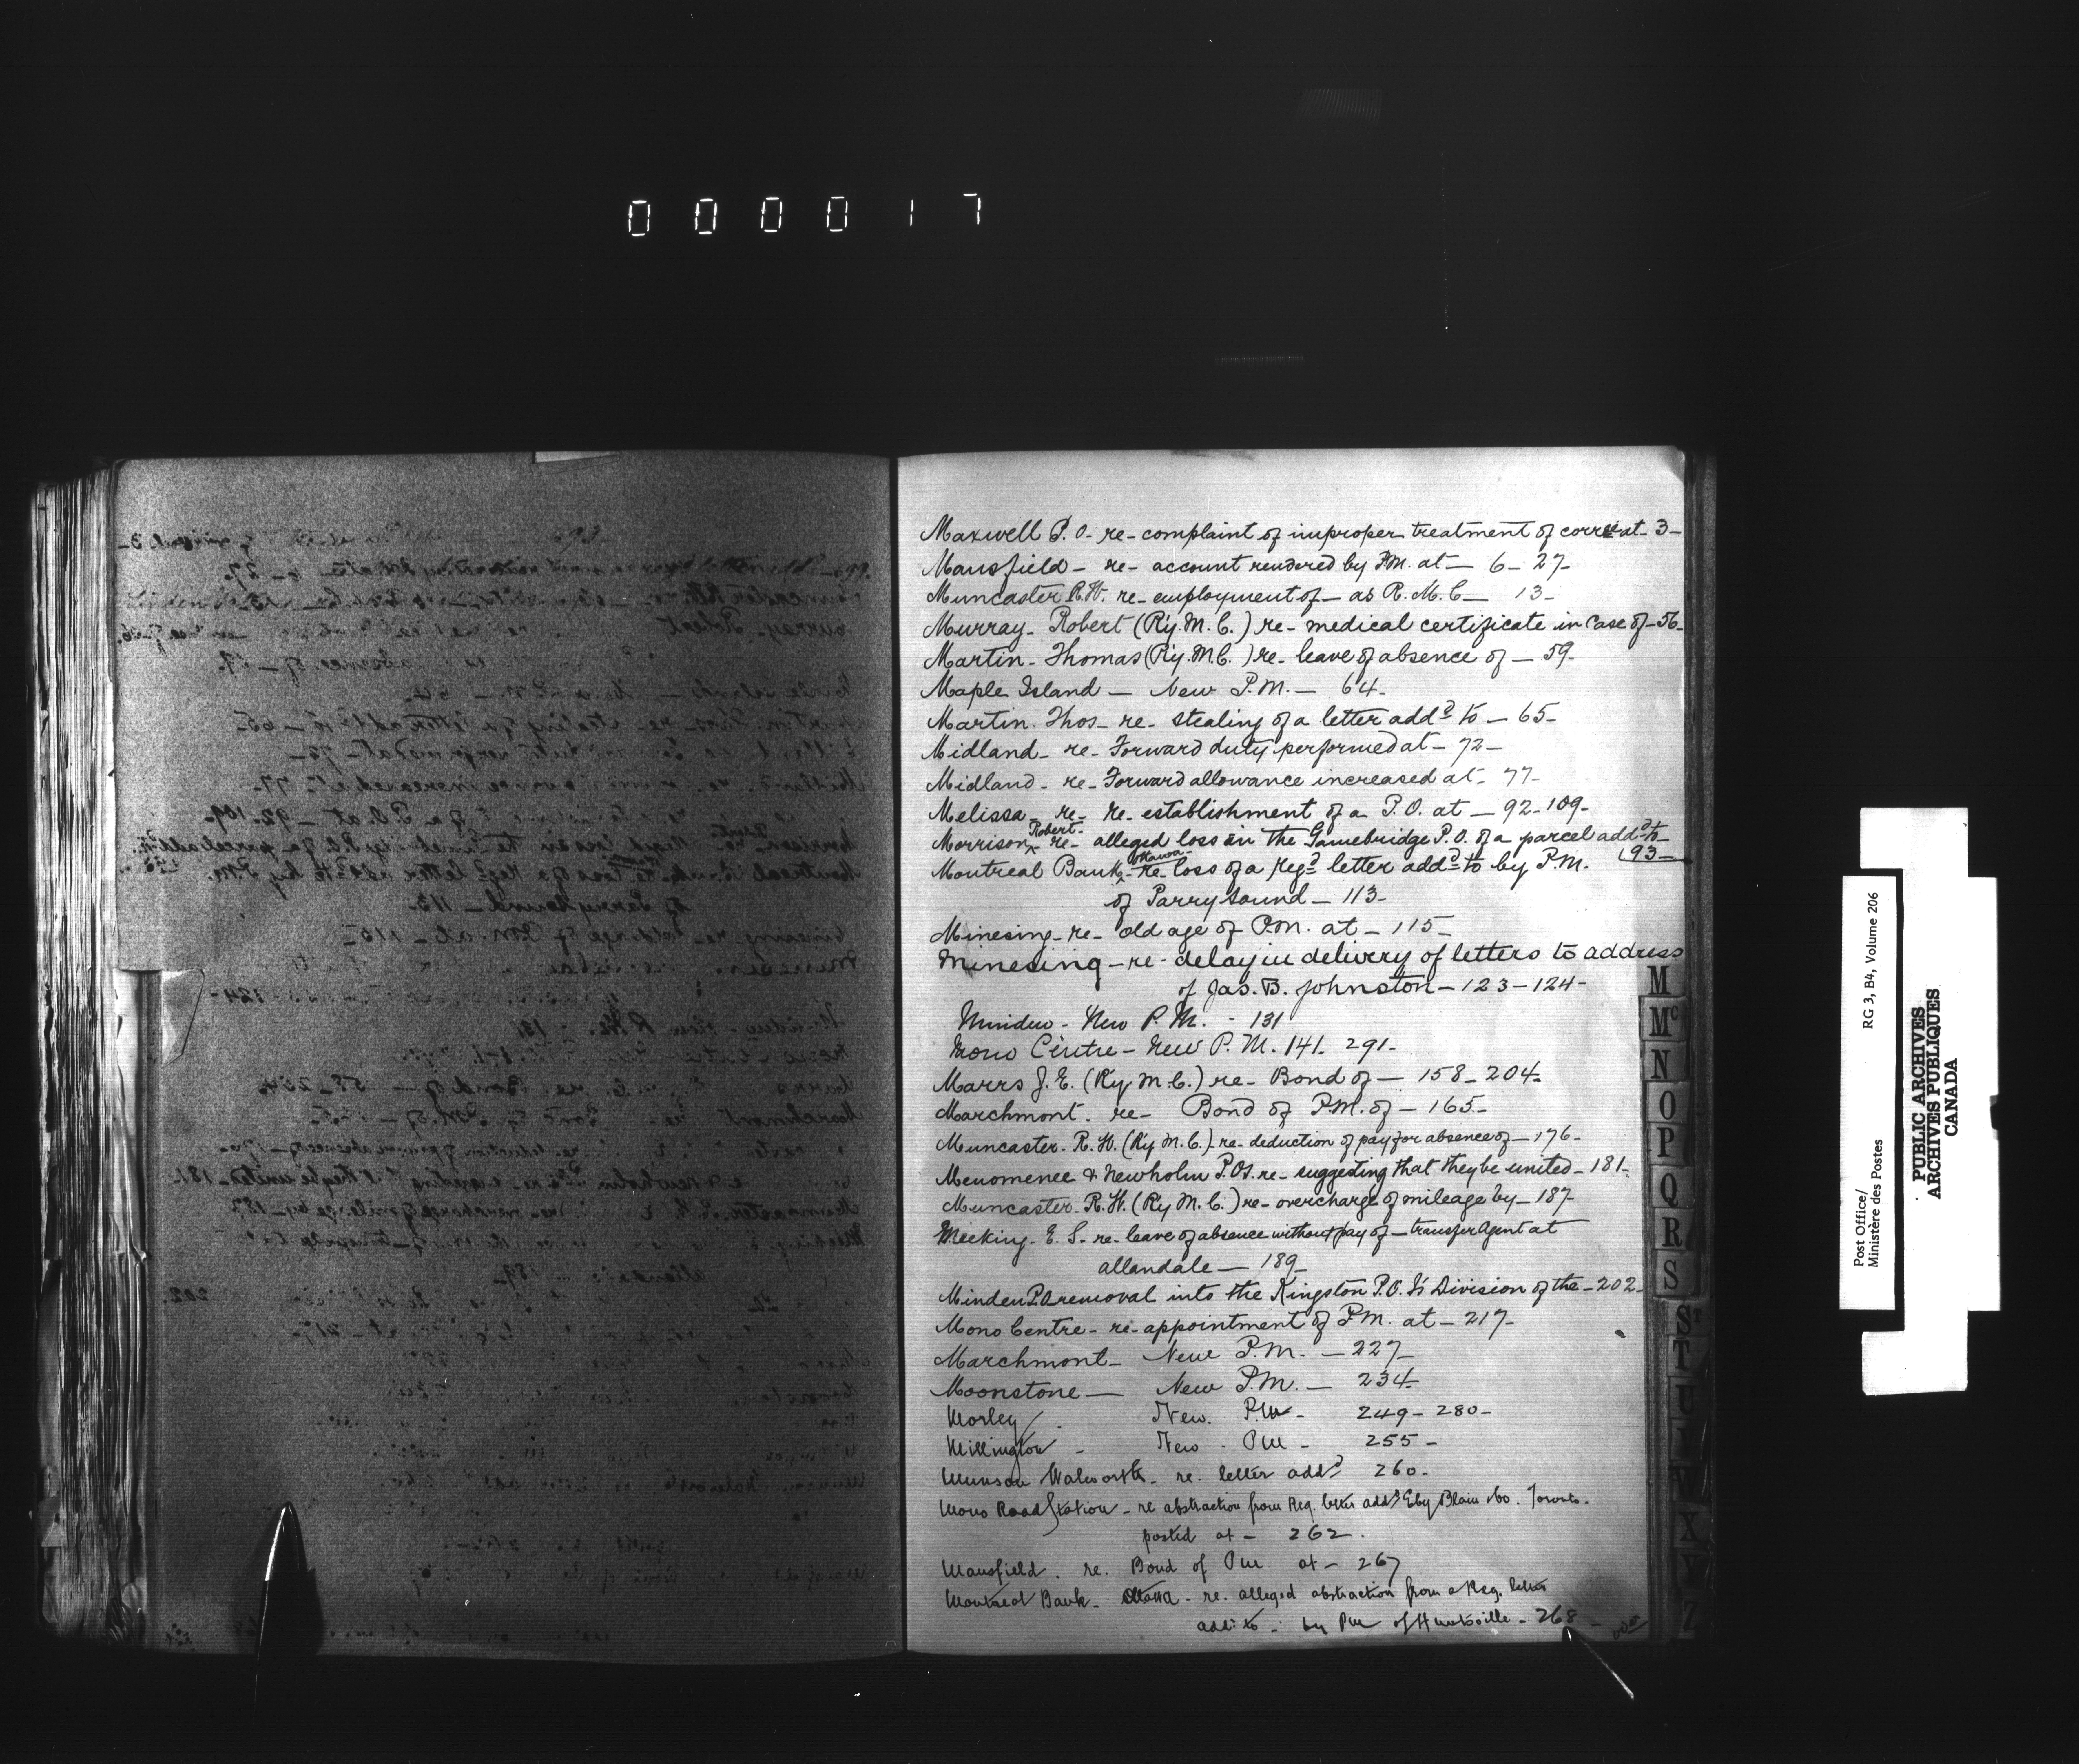 000017
Maxwell P.O. re- complaint of improper treatment of corre at- 3-
Mansfield- re- account rendered by P.M. at- 6- 27-
Muncaster R.H. re- employment of- as R.M.C- 13-
Murray- Robert (Ry.M.C.) re- medical certificate in case of- 56-
Martin- Thomas (Ry.M.C.) re- leave of absence of- 59-
Maple Island- New P.M.- 64-
Martin. Thos- re- stealing of a letter addd to- 65-
Midland- re- Forward duty performed at- 72-
Midland- re- Forward allowance increased at- 77-
Melissa- re- re-establishment of a P.O. at- 92-109-
Morrison, Robert- re- alleged loss in the Gamebridge P.O. of a parcel addd to
(93-
Montreal Bank- Ottawa- re- loss of a regd letter addd to by P.M.
of Parry Sound- 113-
Minesing- re- old age of P.M. at- 115-
Minesing- re- delay in delivery of letters to address
of Jas. B. Johnston- 123-124-
Minden- New P.M. - 131
Mono Centre- New P.M. 141. 291-
Marrs J.E. (Ry.M.C.) re- Bond of- 158-204-
Marchmont. re- Bond of P.M. of- 165-
Muncaster. R.H. (Ry.M.C.) re- deduction of pay for absence of- 176-
Menomenee & Newholm P.Os. re- suggesting that they be united- 181-
Muncaster- R.H. (Ry.M.C.) re- overcharge of mileage by- 187-
Meeking- E.S. re- leave of absence without pay of- transfer Agent at
allandale- 189-
Minden P.O removal into the Kingston P.O. Is Division of the- 202-
Mono Centre- re- appointment of P.M. at- 217-
Marchmont- New P.M.- 227-
Moonstone- New P.M.- 234-
Morley New. P.M- 249-280-
Millington - New - PM- 255-
Munson Walworth- re. letter addd 260-
Mono Road Station- re abstraction from Reg. letter addd Eby Blain & Co. Toronto-
posted at- 262.
Mansfield. re. Bond of PM at- 267
Montreal Bank- Ottawa- re. alleged abstraction from a Reg. letter
add: to- by PM of Huntsville- 268-
M
Mc
N
O
P
Q
R
S
ST
T
U
W
X
Y
Z
Post Office/ RG 3, B4, Volume 206
Ministère des Postes
PUBLIC ARCHIVES
ARCHIVES PUBLIQUES
CANADA